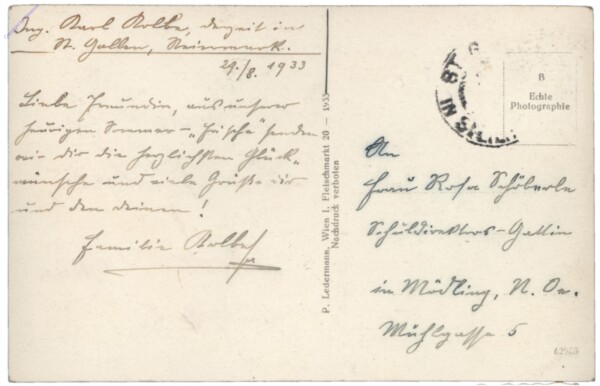 Ing. Karl Kolbe, derzeit in
St. Gallen, Steiermark.
29./8. 1933
Liebe Freundin, aus unserer
heurigen Sommer-"Frische" senden
wir dir die herzlichsten Glück-
wünsche und viele Grüße dir
und den deinen!
Familie Kolbe
P. Ledermann, Wien I, Fleischmarkt 20 — 1933
Nachdruck verboten
ST. G
IN STEIER
B
Echte
Photographie
An
Frau Rosa Schöberle
Schuldirektors-Gattin
in Mödling, N. Oe.
Mühlgasse 5